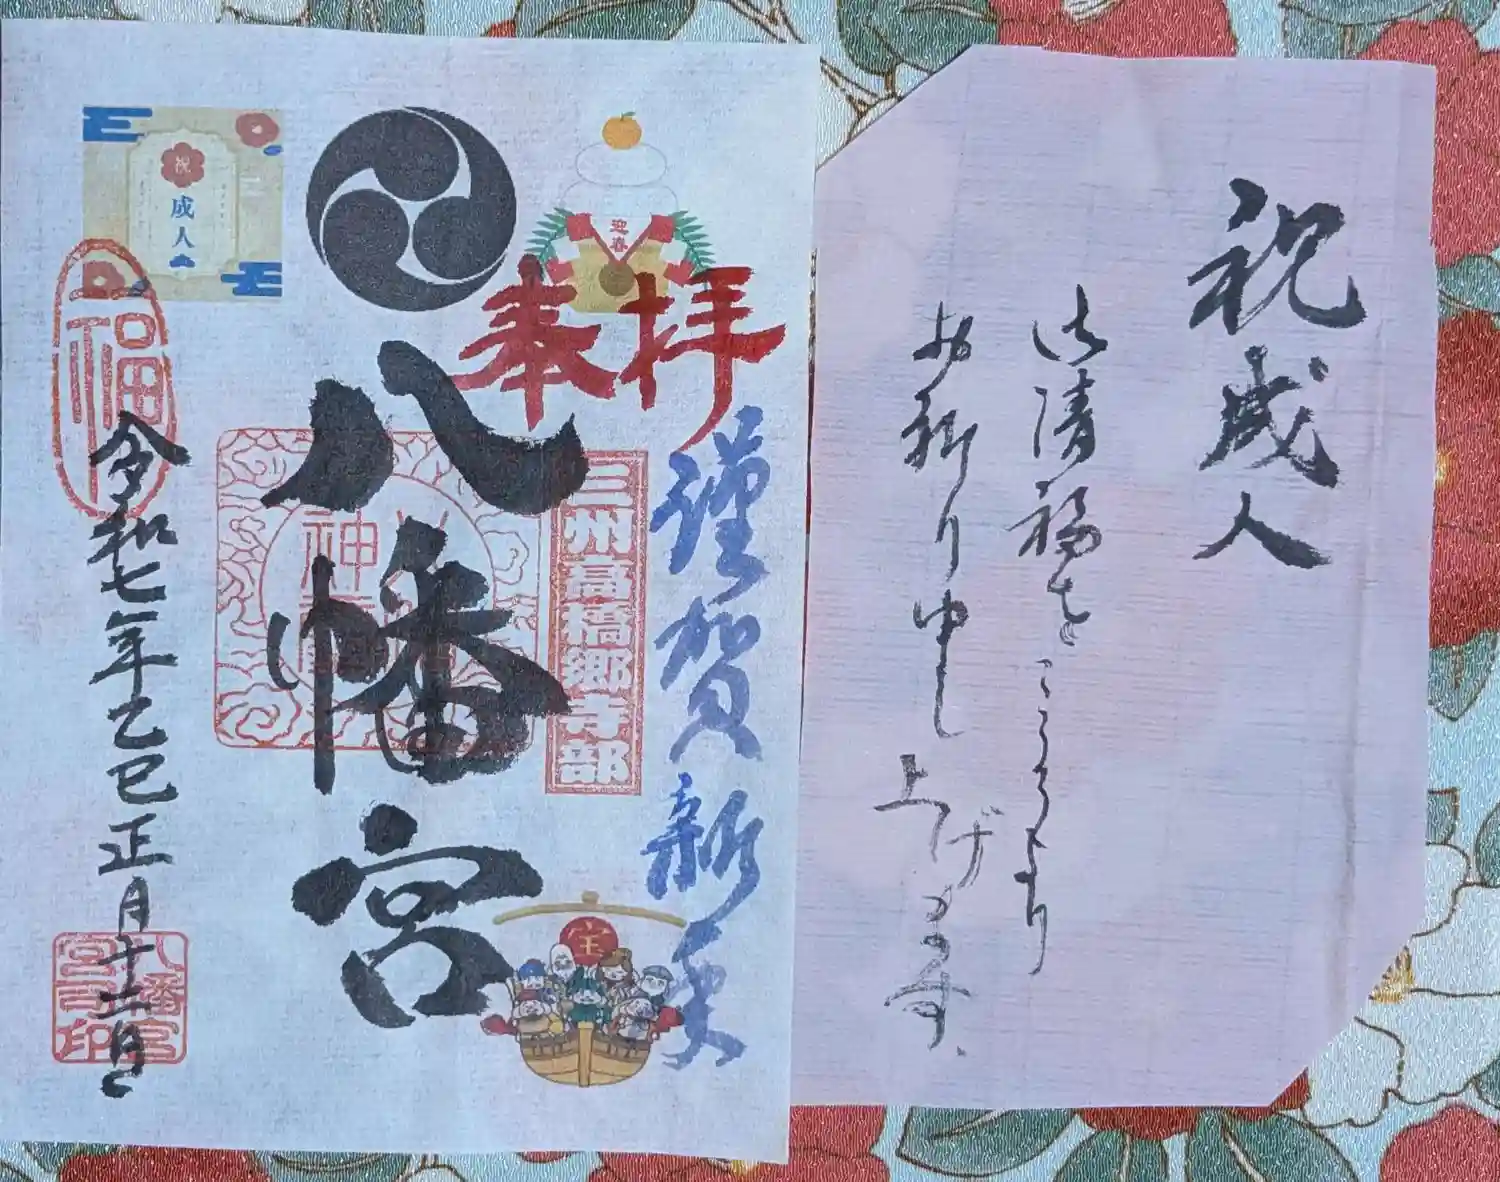 祝成人
御清福をこころより
お祈り申し上げます
奉拝
謹賀新春
八幡宮
三州高橋郷寺部
令和七年乙巳正月十二日
祝
成人
迎春
福
宝
八幡宮
宮司印